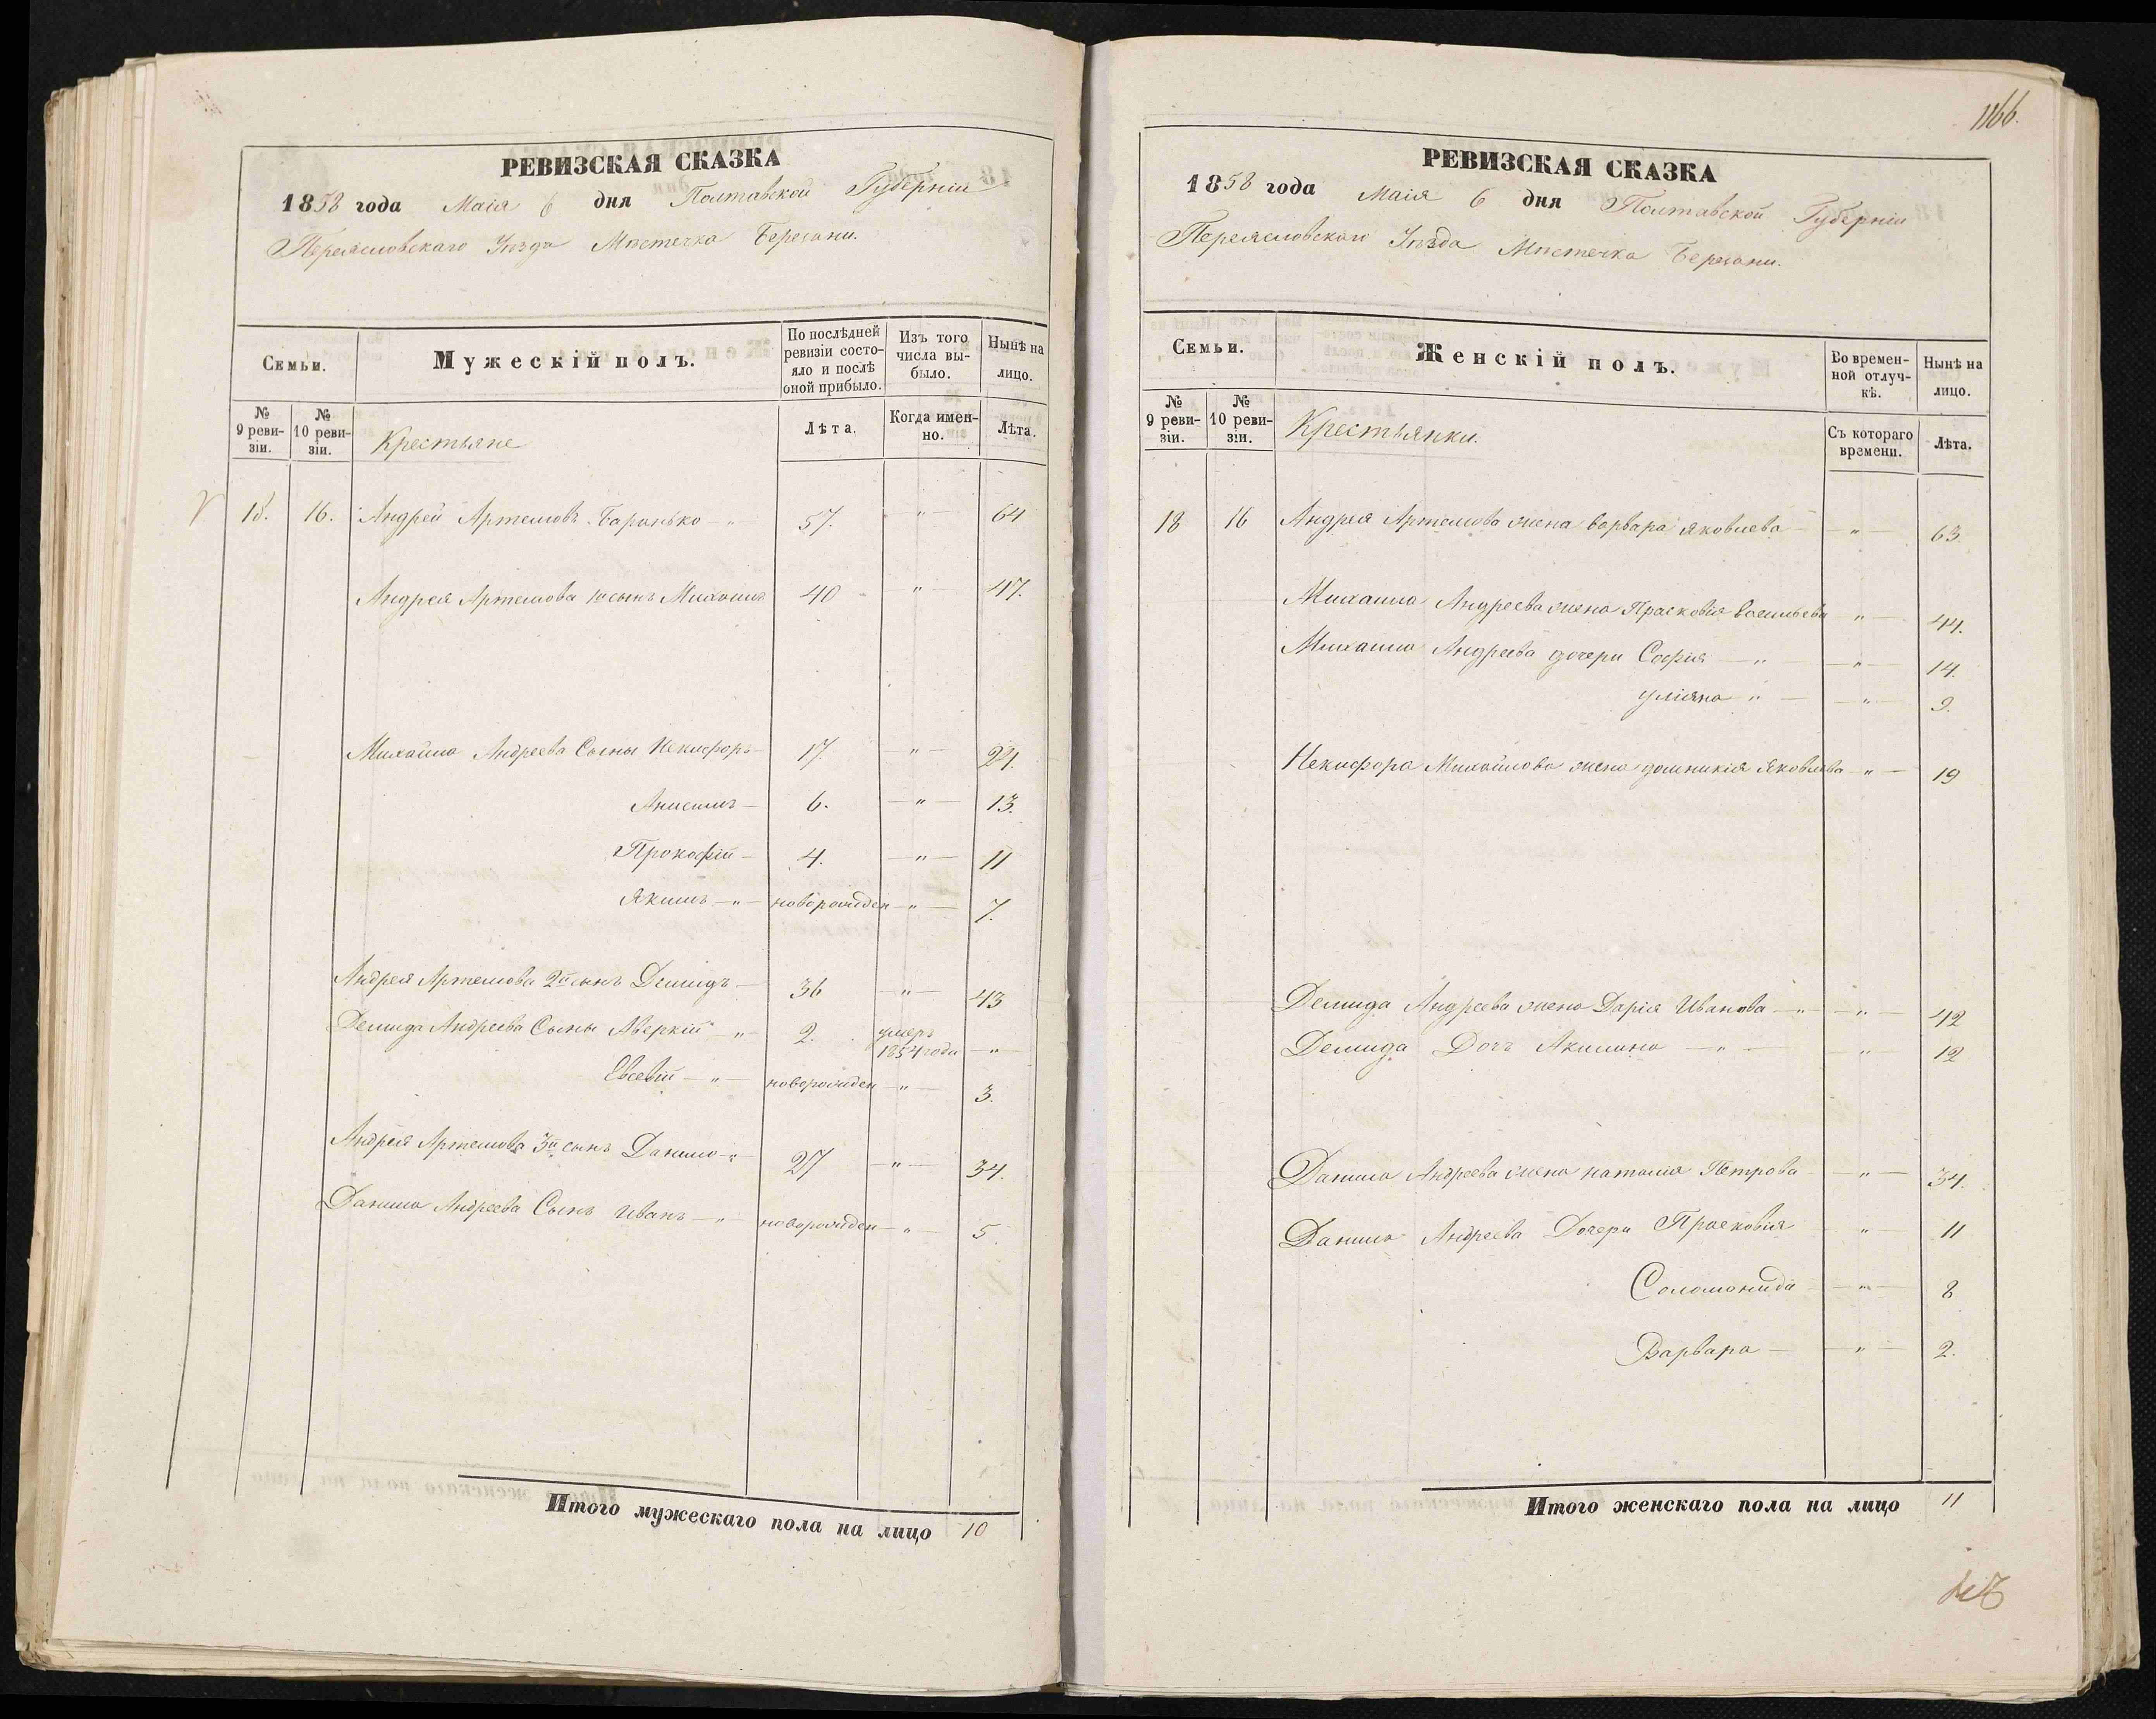 РЕВИЗСКАЯ СКАЗКА
1858 года Маія 6 дня Полтавской Губерніи
Переясловскаго Уѣзда Мѣстечка Березани.
Семьи.
Мужескій полъ.
По послѣдней ревизіи состояло и послѣ оной прибыло.
Изъ того числа выбыло.
Нынѣ на лицо.
№ 9 ревизіи.
№ 10 ревизіи.
Крестьяне
Лѣта.
Когда именно.
Лѣта.
18. 16. Андрей Артемовъ Баранько - " 57. " - 64
Андрея Артемова 1й сынъ Михаилъ 40 - " - 47.
Михайла Андреева Сыны Некифоръ - 17. - " - 24.
Анисимъ - 6. - " - 13.
Прокофій - 4. - " - 11
Якимъ - " - новорожден - " - 7.
Андрея Артемова 2й сынъ Демидъ - 36 - " - 43
Демида Андреева Сыны Аверкій " - 2. умеръ 1854 года - " -
Евсевій - " - новорожден - " - 3.
Андрея Артемова 3й сынъ Данило - " 27 - " - 34.
Данила Андреева Сынъ Иванъ - " - новорожден - " - 5.
Итого мужескаго пола на лицо 10
1166.
РЕВИЗСКАЯ СКАЗКА
1858 года Маія 6 дня Полтавской Губерніи
Переясловскаго Уѣзда Мѣстечка Березани.
Семьи.
Женскій полъ.
Во временной отлучкѣ.
Нынѣ на лицо.
№ 9 ревизіи.
№ 10 ревизіи.
Крестьянки.
Съ котораго времени.
Лѣта.
18 16 Андрея Артемова жена Варвара Яковлева - " - 63.
Михаила Андреева жена Прасковія Васильева " - 44.
Михаила Андреева дочери Софія - " - " - 14.
Уліяна " - - " - 9.
Некифора Михайлова жена Домникія Яковлева - " - 19
Демида Андреева жена Дарія Иванова - " - " - 42
Демида Дочь Акилина - " - " - 12
Данила Андреева жена Наталія Петрова - " - 34.
Данила Андреева Дочери Прасковія " 11
Соломонида - " - 8
Варвара - - " - 2.
Итого женскаго пола на лицо 11